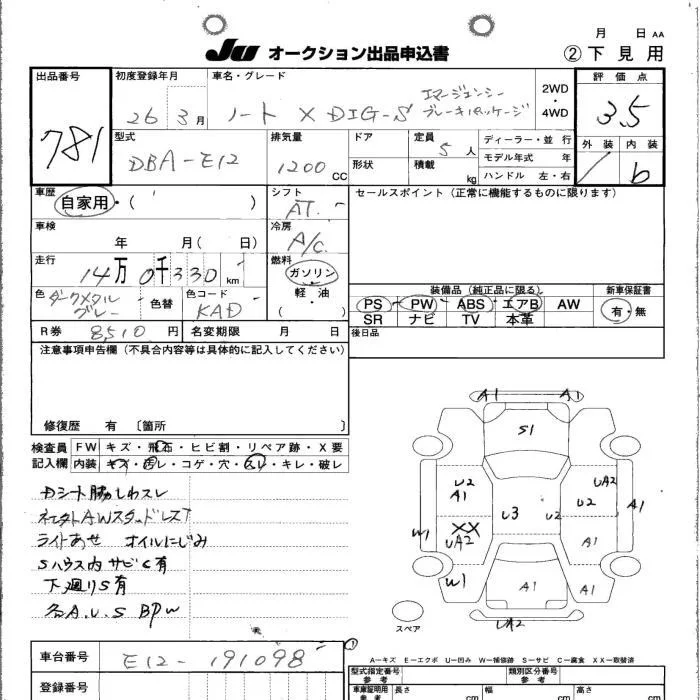 月 日 AA
JU オークション出品申込書
② 下見用
出品番号
781
初度登録年月
26 3月
車名・グレード
ノート X DIG-S エマージェンシーブレーキパッケージ
2WD・4WD
評価点
3.5
外装 内装
b
型式
DBA-E12
排気量
1200 CC
ドア
形状
定員
5人
積載
kg
ディーラー・並行
モデル年式 年
ハンドル 左・右
車歴
自家用・( )
シフト
AT.
セールスポイント (正常に機能するものに限ります)
車検
年 月( 日)
冷房
A/C
走行
14万0千330km
燃料
ガソリン
軽油
( )
色
ダークメタルグレー
色替
色コード
KAD
装備品 (純正品に限る)
PS PW ABS エアB AW
SR ナビ TV 本革
新車保証書
有・無
R券 8510円
名変期限 月 日
後日品
注意事項申告欄 (不具合内容等は具体的に記入してください)
修復歴 有 〔箇所 〕
検査員記入欄
FW キズ・飛石・ヒビ割・リペア跡・X要
内装 キズ・汚レ・コゲ・穴・スレ・キレ・破レ
Dシート脇しわスレ
ライトあせ オイルにじみ
Sハウス内サビC有
下廻りS有
各A.U.S BPW
A1 A1
S1
U2
A1
UA2
U2
A1
U3
U2
XX
UA2
W1
A1
W1
A1
A1
UA2
スペア
A−キズ E−エクボ U−凹み W−補修跡 S−サビ C−腐食 XX−取替済
車台番号
E12-191098
登録番号
①
型式指定番号
参考
類別区分番号
参考
車庫証明用
参考
長さ cm
幅 cm
高さ cm